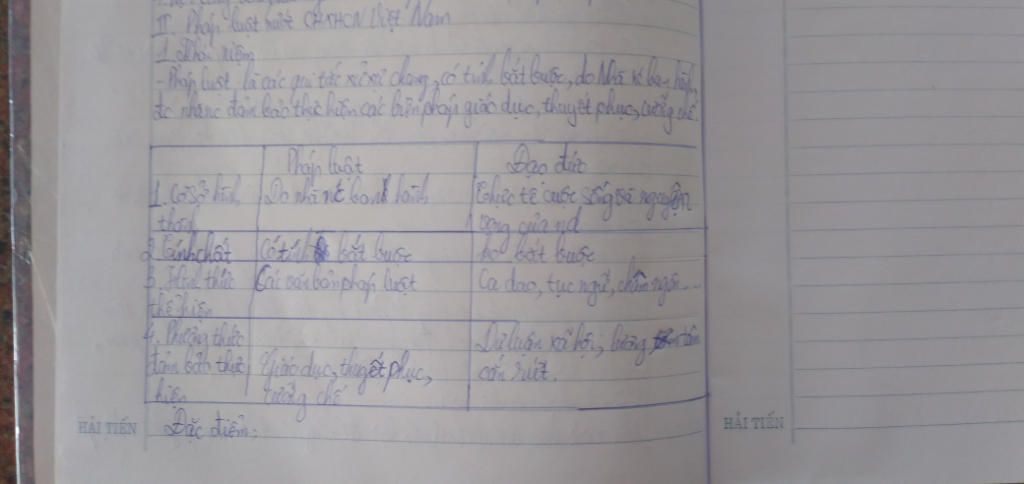 II. Pháp luật nước CHXHCN Việt Nam
1. Khái niệm
- Pháp luật là các qui tắc xử sự chung, có tính bắt buộc, do Nhà nc ban hành,
đc nhà nc đảm bảo thực hiện các biện pháp giáo dục, thuyết phục, cưỡng chế.
Pháp luật Đạo đức
1. Cơ sở hình Do nhà nc ban hành Thực tế cuộc sống và nguyện
thành vọng của nd
2. Tính chất Có tính bắt buộc ko bắt buộc
3. Hình thức Các văn bản pháp luật Ca dao, tục ngữ, châm ngôn...
thể hiện
4. Phương thức Dư luận xã hội, lương tâm
đảm bảo thực Giáo dục, thuyết phục, cắn rứt.
hiện cưỡng chế
Đặc điểm:
HẢI TIẾN
HẢI TIẾN